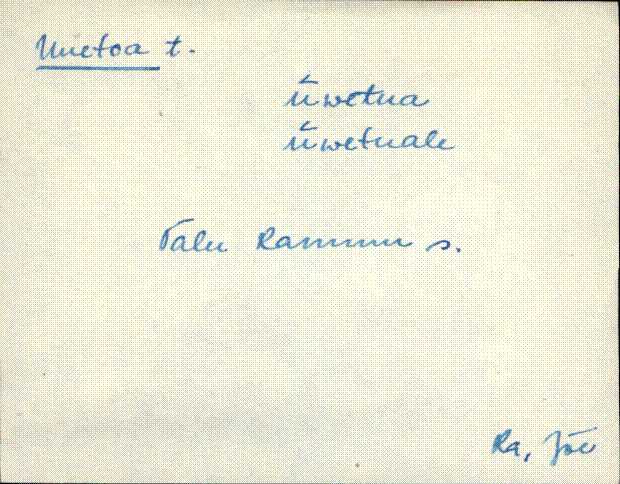 Uuetoa t.
ū̀wetua
ū̀wetuale
Talu Rammu s.
Ra, Jõe